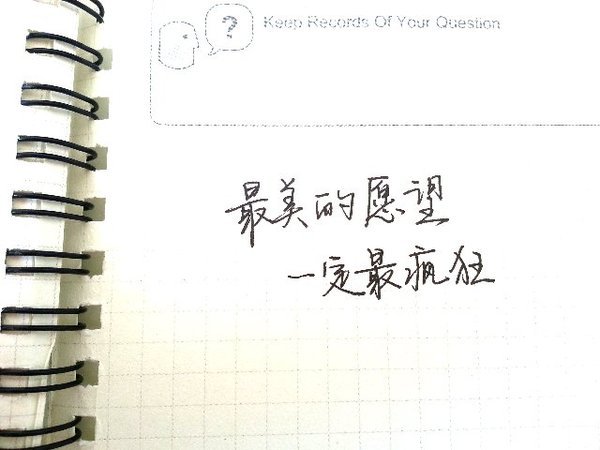 ?
Keep Records Of Your Question
最美的愿望
一定最疯狂